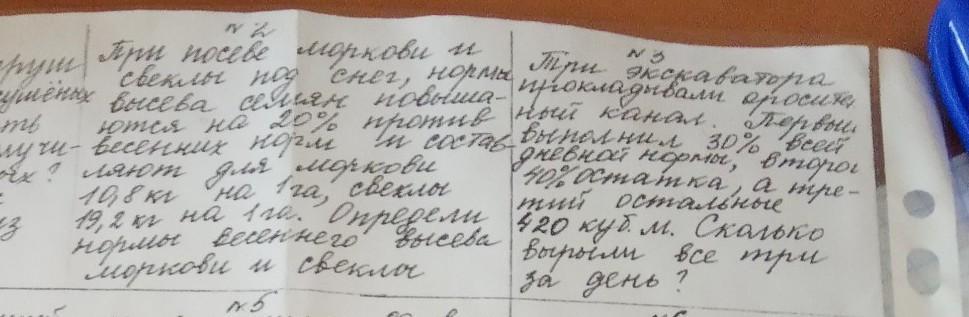 №2
При посеве моркови и
свеклы под снег, нормы
высева семян повыша-
ются на 20% против
весенних норм и состав-
ляют для моркови
10,8 кг на 1 га, свеклы
19,2 кг на 1 га. Определи
нормы весеннего высева
моркови и свеклы
№3
Три экскаватора
прокладывали ороси
ный канал. Первый
выполнил 30% всей
дневной нормы, второй
40% остатка, а тре-
тий остальные
420 куб. м. Сколько
вырыли все три
за день?
№5